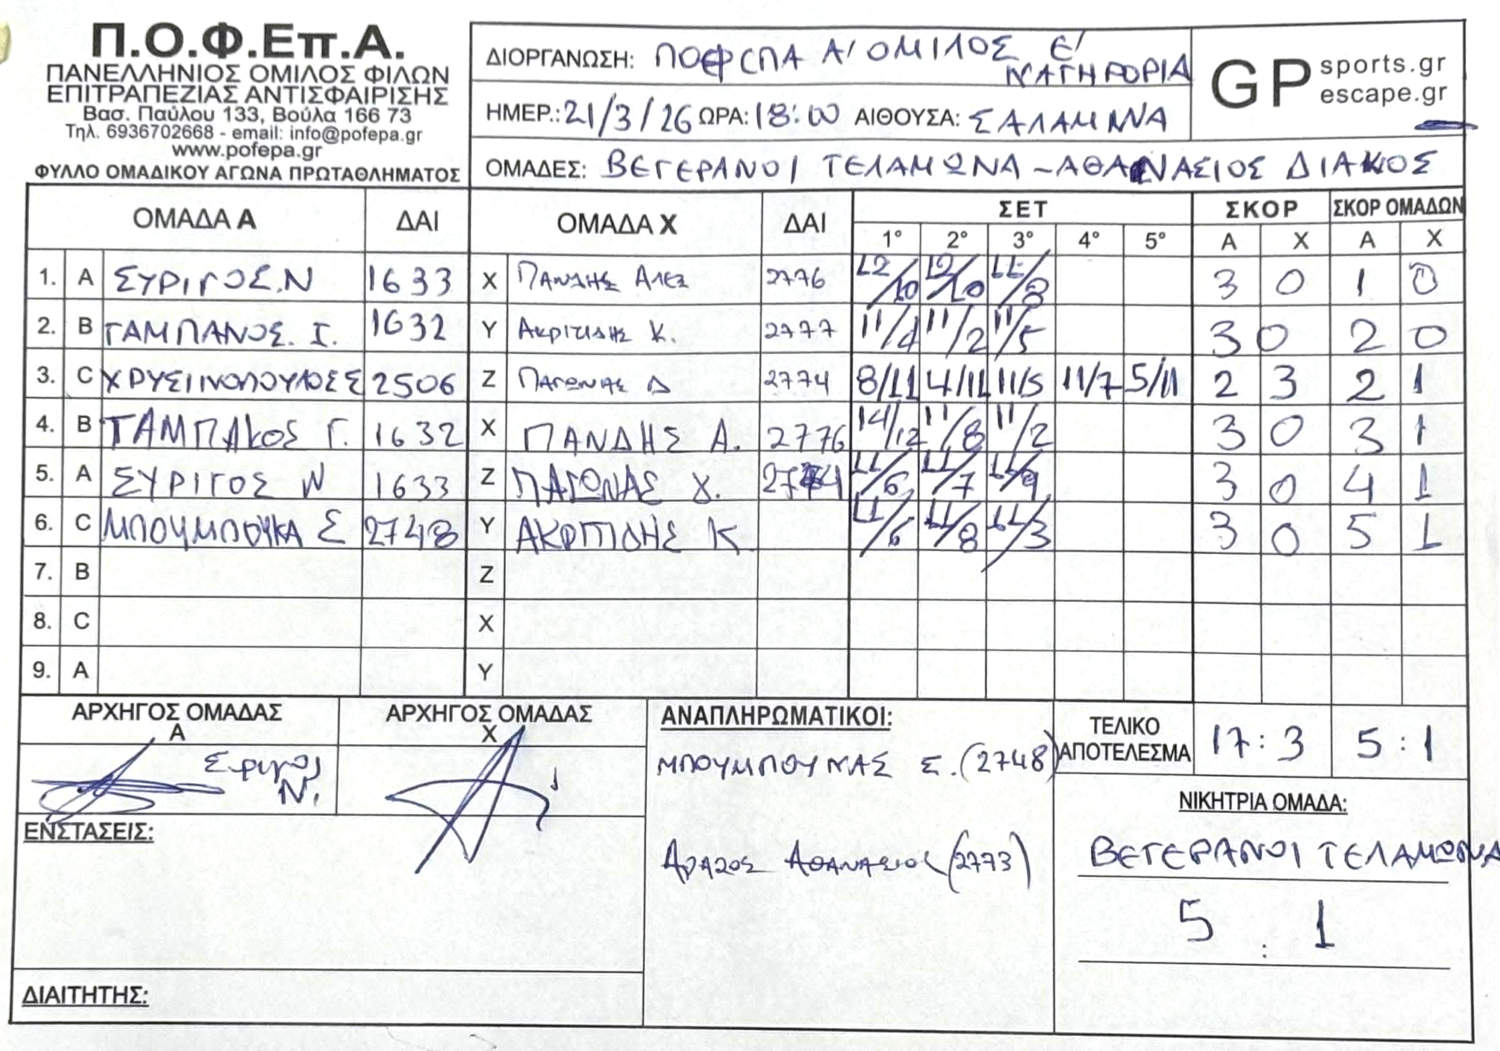 Π.Ο.Φ.Επ.Α.
ΠΑΝΕΛΛΗΝΙΟΣ ΟΜΙΛΟΣ ΦΙΛΩΝ
ΕΠΙΤΡΑΠΕΖΙΑΣ ΑΝΤΙΣΦΑΙΡΙΣΗΣ
Βασ. Παύλου 133, Βούλα 166 73
Τηλ. 6936702668 - email: info@pofepa.gr
www.pofepa.gr
ΦΥΛΛΟ ΟΜΑΔΙΚΟΥ ΑΓΩΝΑ ΠΡΩΤΑΘΛΗΜΑΤΟΣ
ΔΙΟΡΓΑΝΩΣΗ: ΠΟΦΕΠΑ Α' ΟΜΙΛΟΣ Ε'
ΚΑΤΗΓΟΡΙΑ
GP sports.gr
escape.gr
ΗΜΕΡ.: 21/3/26 ΩΡΑ: 18:00 ΑΙΘΟΥΣΑ: ΣΑΛΑΜΙΝΑ
ΟΜΑΔΕΣ: ΒΕΤΕΡΑΝΟΙ ΤΕΛΑΜΩΝΑ - ΑΘΑΝΑΣΙΟΣ ΔΙΑΚΟΣ
ΟΜΑΔΑ Α ΔΑΙ ΟΜΑΔΑ Χ ΔΑΙ ΣΕΤ ΣΚΟΡ ΣΚΟΡ ΟΜΑΔΩΝ
1° 2° 3° 4° 5° Α Χ Α Χ
1. A ΣΥΡΙΓΟΣ.Ν 1633 X ΠΑΝΔΗΣ ΑΛΕΞ 2776 12/10 12/10 11/8 3 0 1 0
2. B ΤΑΜΠΑΚΟΣ. Γ. 1632 Y ΑΚΡΙΤΙΔΗΣ Κ. 2777 11/4 11/2 11/5 3 0 2 0
3. C ΧΡΥΣΙΝΟΠΟΥΛΟΣ Σ 2506 Z ΠΑΓΩΝΑΣ 2774 8/11 4/11 11/5 11/7 5/11 2 3 2 1
4. B ΤΑΜΠΑΚΟΣ Γ. 1632 X ΠΑΝΔΗΣ Α. 2776 14/12 11/8 11/2 3 0 3 1
5. A ΣΥΡΙΓΟΣ Ν 1633 Z ΠΑΓΩΝΑΣ Χ. 2774 11/6 11/7 11/9 3 0 4 1
6. C ΜΠΟΥΜΠΟΥΚΑ Σ 2748 Y ΑΚΡΙΤΙΔΗΣ Κ. 11/6 11/8 11/3 3 0 5 1
7. B Z
8. C X
9. A Y
ΑΡΧΗΓΟΣ ΟΜΑΔΑΣ
Α
Συριγος
Ν.
ΑΡΧΗΓΟΣ ΟΜΑΔΑΣ
Χ
ΑΝΑΠΛΗΡΩΜΑΤΙΚΟΙ:
ΜΠΟΥΜΠΟΥΚΑΣ Σ. (2748)
ΑΘΑΝΑΣΙΟΣ (2773)
ΤΕΛΙΚΟ
ΑΠΟΤΕΛΕΣΜΑ
17:3 5:1
ΝΙΚΗΤΡΙΑ ΟΜΑΔΑ:
ΒΕΤΕΡΑΝΟΙ ΤΕΛΑΜΩΝΑ
5 : 1
ΕΝΣΤΑΣΕΙΣ:
ΔΙΑΙΤΗΤΗΣ: